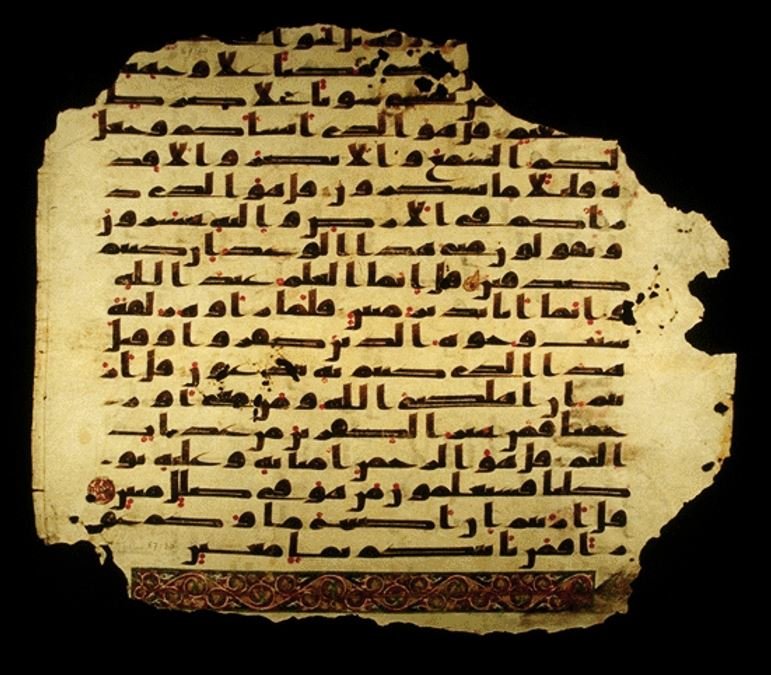 رزقه بل لجوا
يمشي مكبا على وجهه
من يمشي سويا على صرط
مستقيم قل هو الذي انشاكم وجعل
لكم السمع والابصر والافد
ة قليلا ما تشكرون قل هو الذي ذ
راكم في الارض واليه تحشرون
ويقولون متى هذا الوعد ان كنتم
صدقين قل انما العلم عند الله
وانما انا نذير مبين فلما راوه زلفة
سيت وجوه الذين كفروا وقيل
هذا الذي كنتم به تدعون قل ار
يتم ان اهلكني الله ومن معي او ر
حمنا فمن يجير الكفرين من عذاب
اليم قل هو الرحمن امنا به وعليه تو
كلنا فستعلمون من هو في ضلل مبين
قل اريتم ان اصبح ماوكم غو
را فمن ياتيكم بما معين